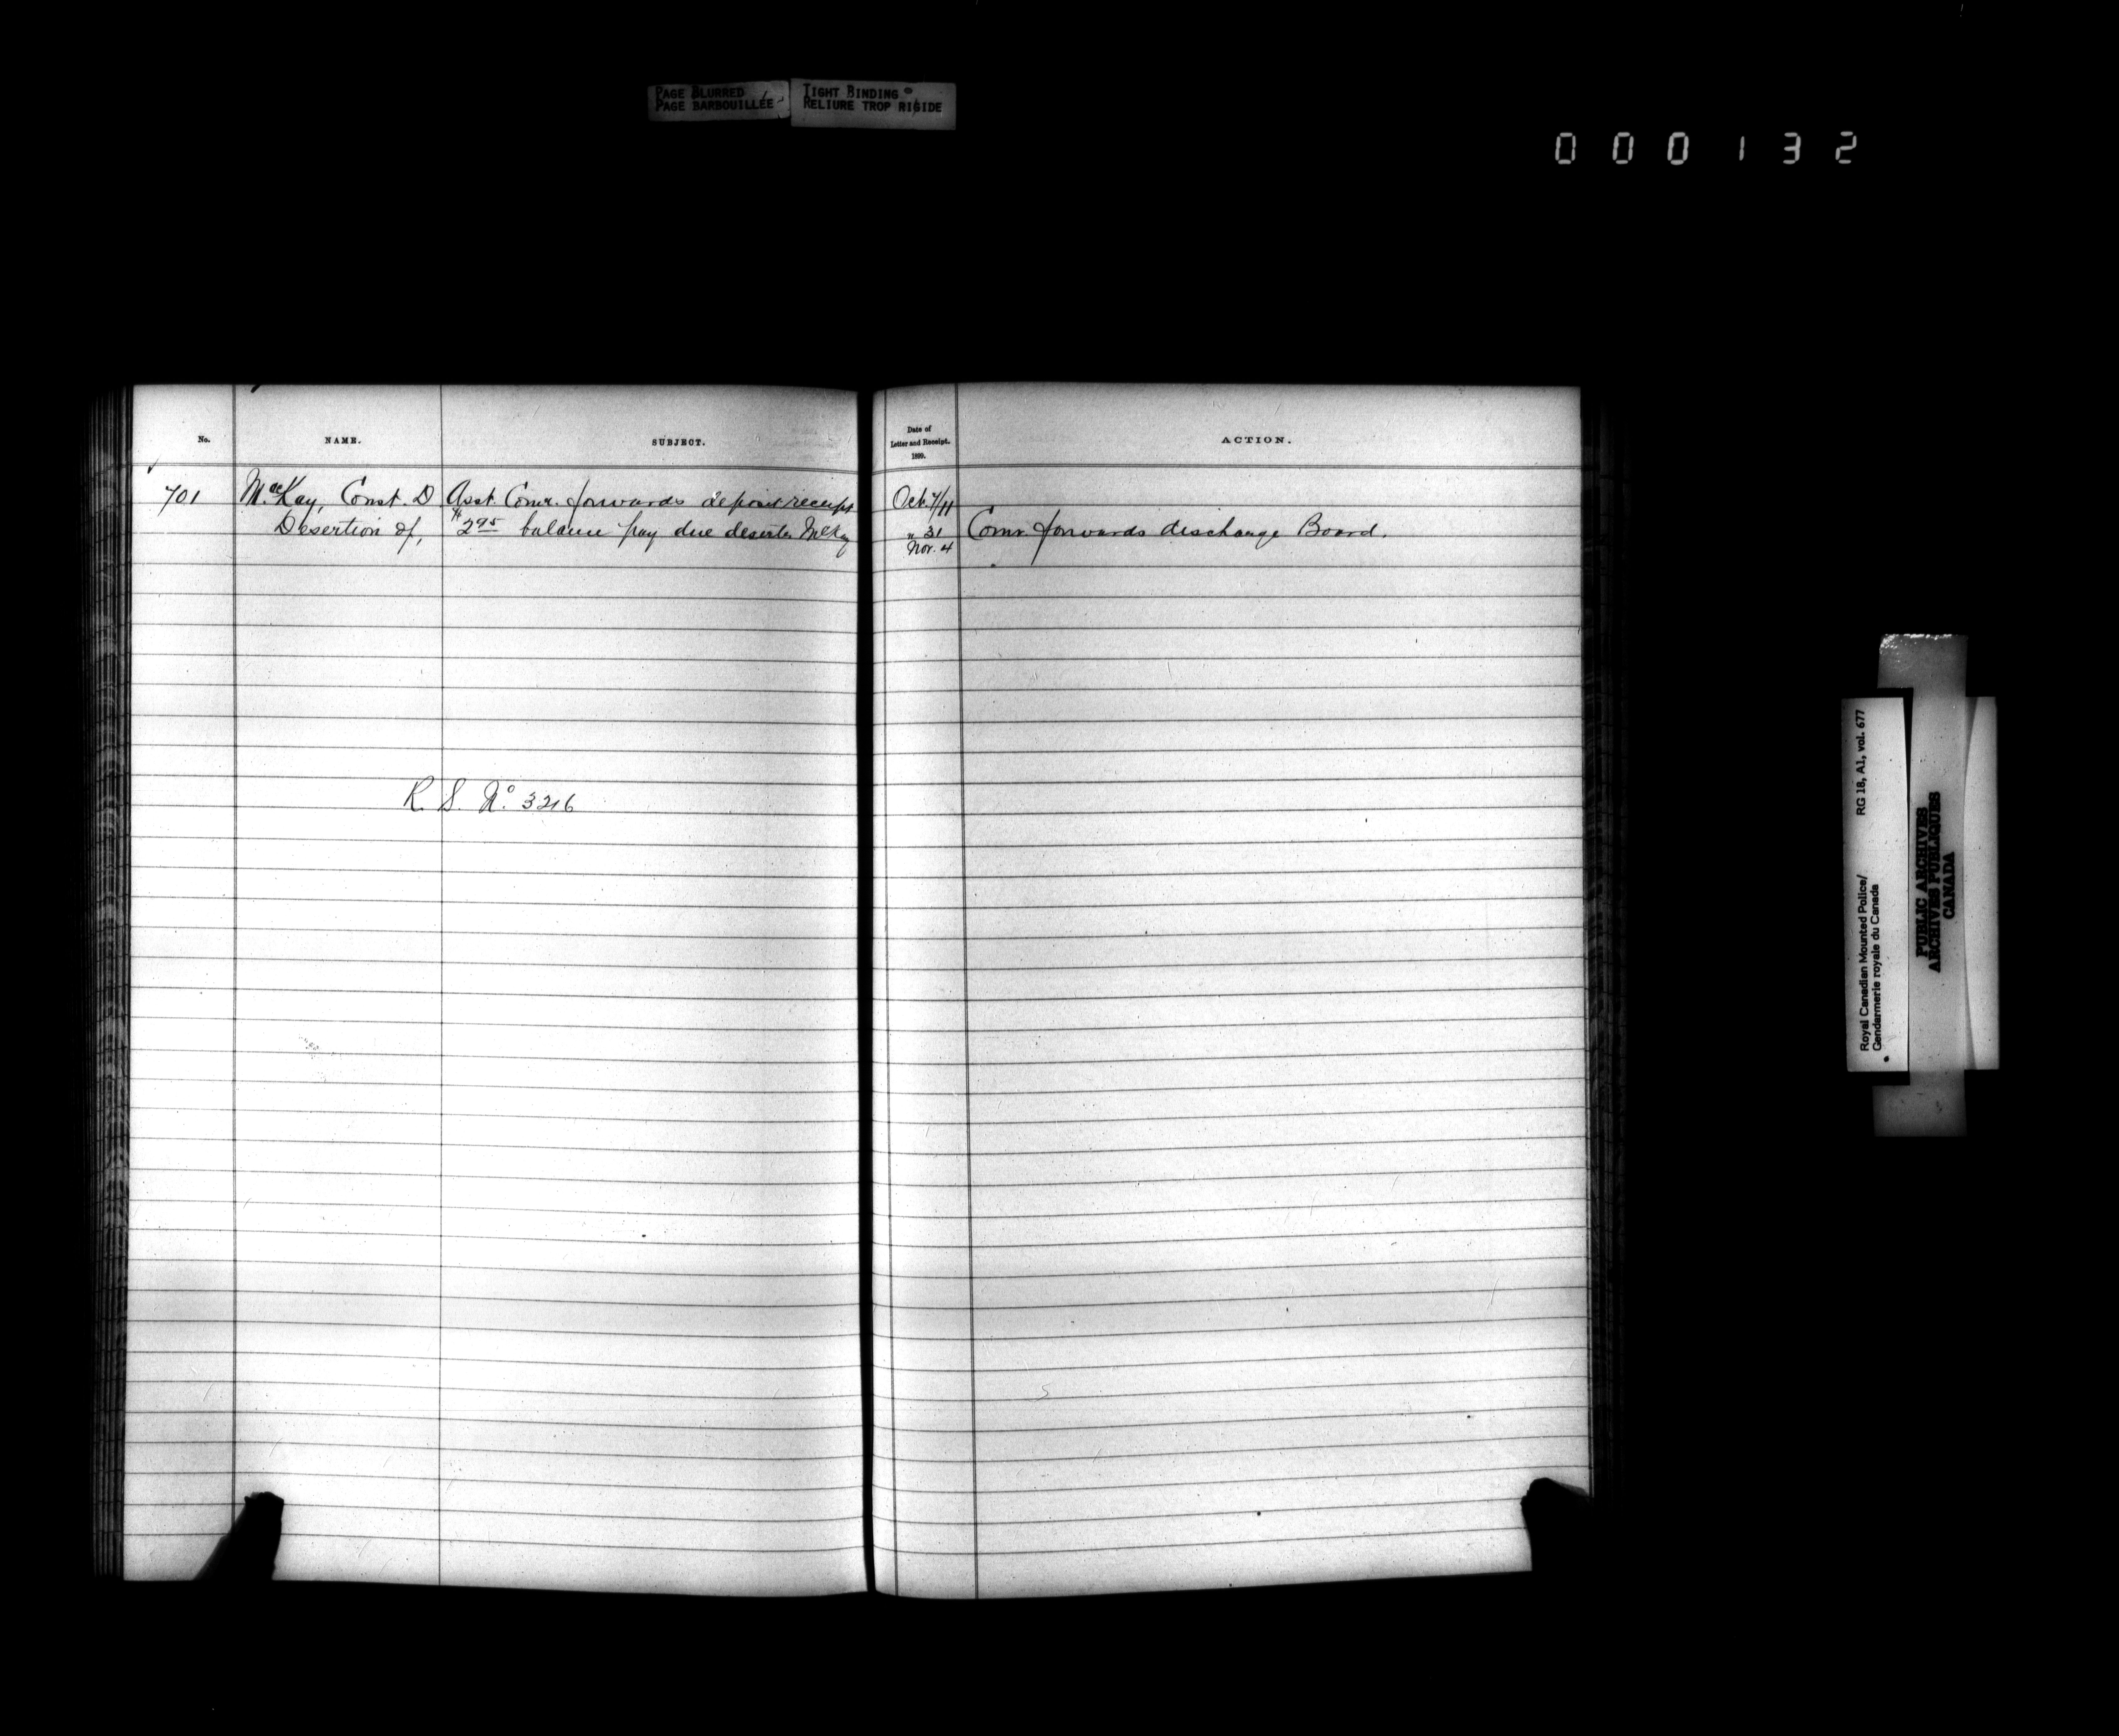 PAGE BLURRED
PAGE BARBOUILLÉE
TIGHT BINDING
RELIURE TROP RIGIDE
000132
No.
NAME.
SUBJECT.
Date of
Letter and Receipt.
1899.
ACTION.
701
MacKay, Const. D
Desertion of,
Asst. Comr. forwards deposit receipt
$2.95 balance pay due deserter McKay
Oct. 7/11
" 31
Nov. 4
Comr. forwards discharge Board.
R. S. No. 3216
Royal Canadian Mounted Police/
Gendarmerie royale du Canada
RG 18, A1, vol. 677
PUBLIC ARCHIVES
ARCHIVES PUBLIQUES
CANADA